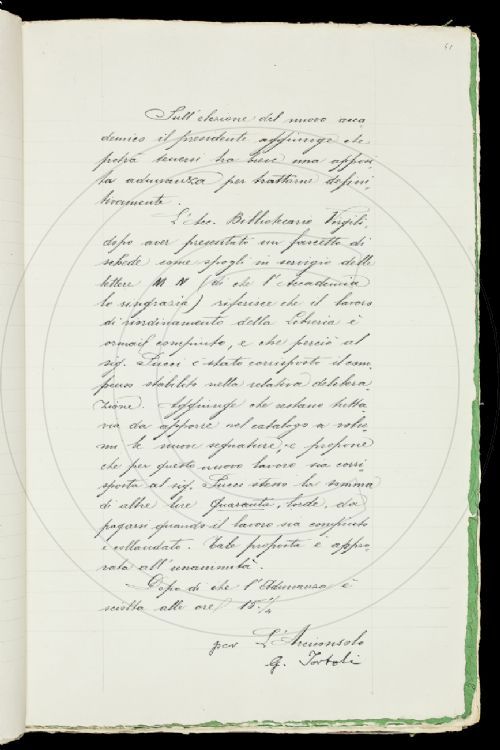 61
Sull'elezione del nuovo acca-
demico il presidente aggiunge che
potrà tenersi tra breve una apposi-
ta adunanza per trattarne defini-
tivamente.
L'Acc. Bibliotecario Virgili,
dopo aver presentato un fascetto di
schede come spogli in servigio delle
lettere M N (di che l'Accademia
lo ringrazia) referisce che il lavoro
di riordinamento della Libreria è
ormai compiuto, e che perciò al
sig. Pucci è stato corrisposto il com-
penso stabilito nella relativa delibera-
zione. Aggiunge che restano tutta
via da apporre nel catalogo a volu-
mi le nuove segnature, e propone
che per questo nuovo lavoro sia corri-
sposta al sig. Pucci stesso la somma
di altre lire Quaranta, lorde, da
pagarsi quando il lavoro sia compiuto
e collaudato. Tale proposta è appro-
vata all'unanimità.
Dopo di che l'Adunanza è
sciolta alle ore 15 1/4
per L'Arciconsolo
G. Tortoli